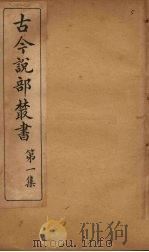 古今說部叢書
第一集
5